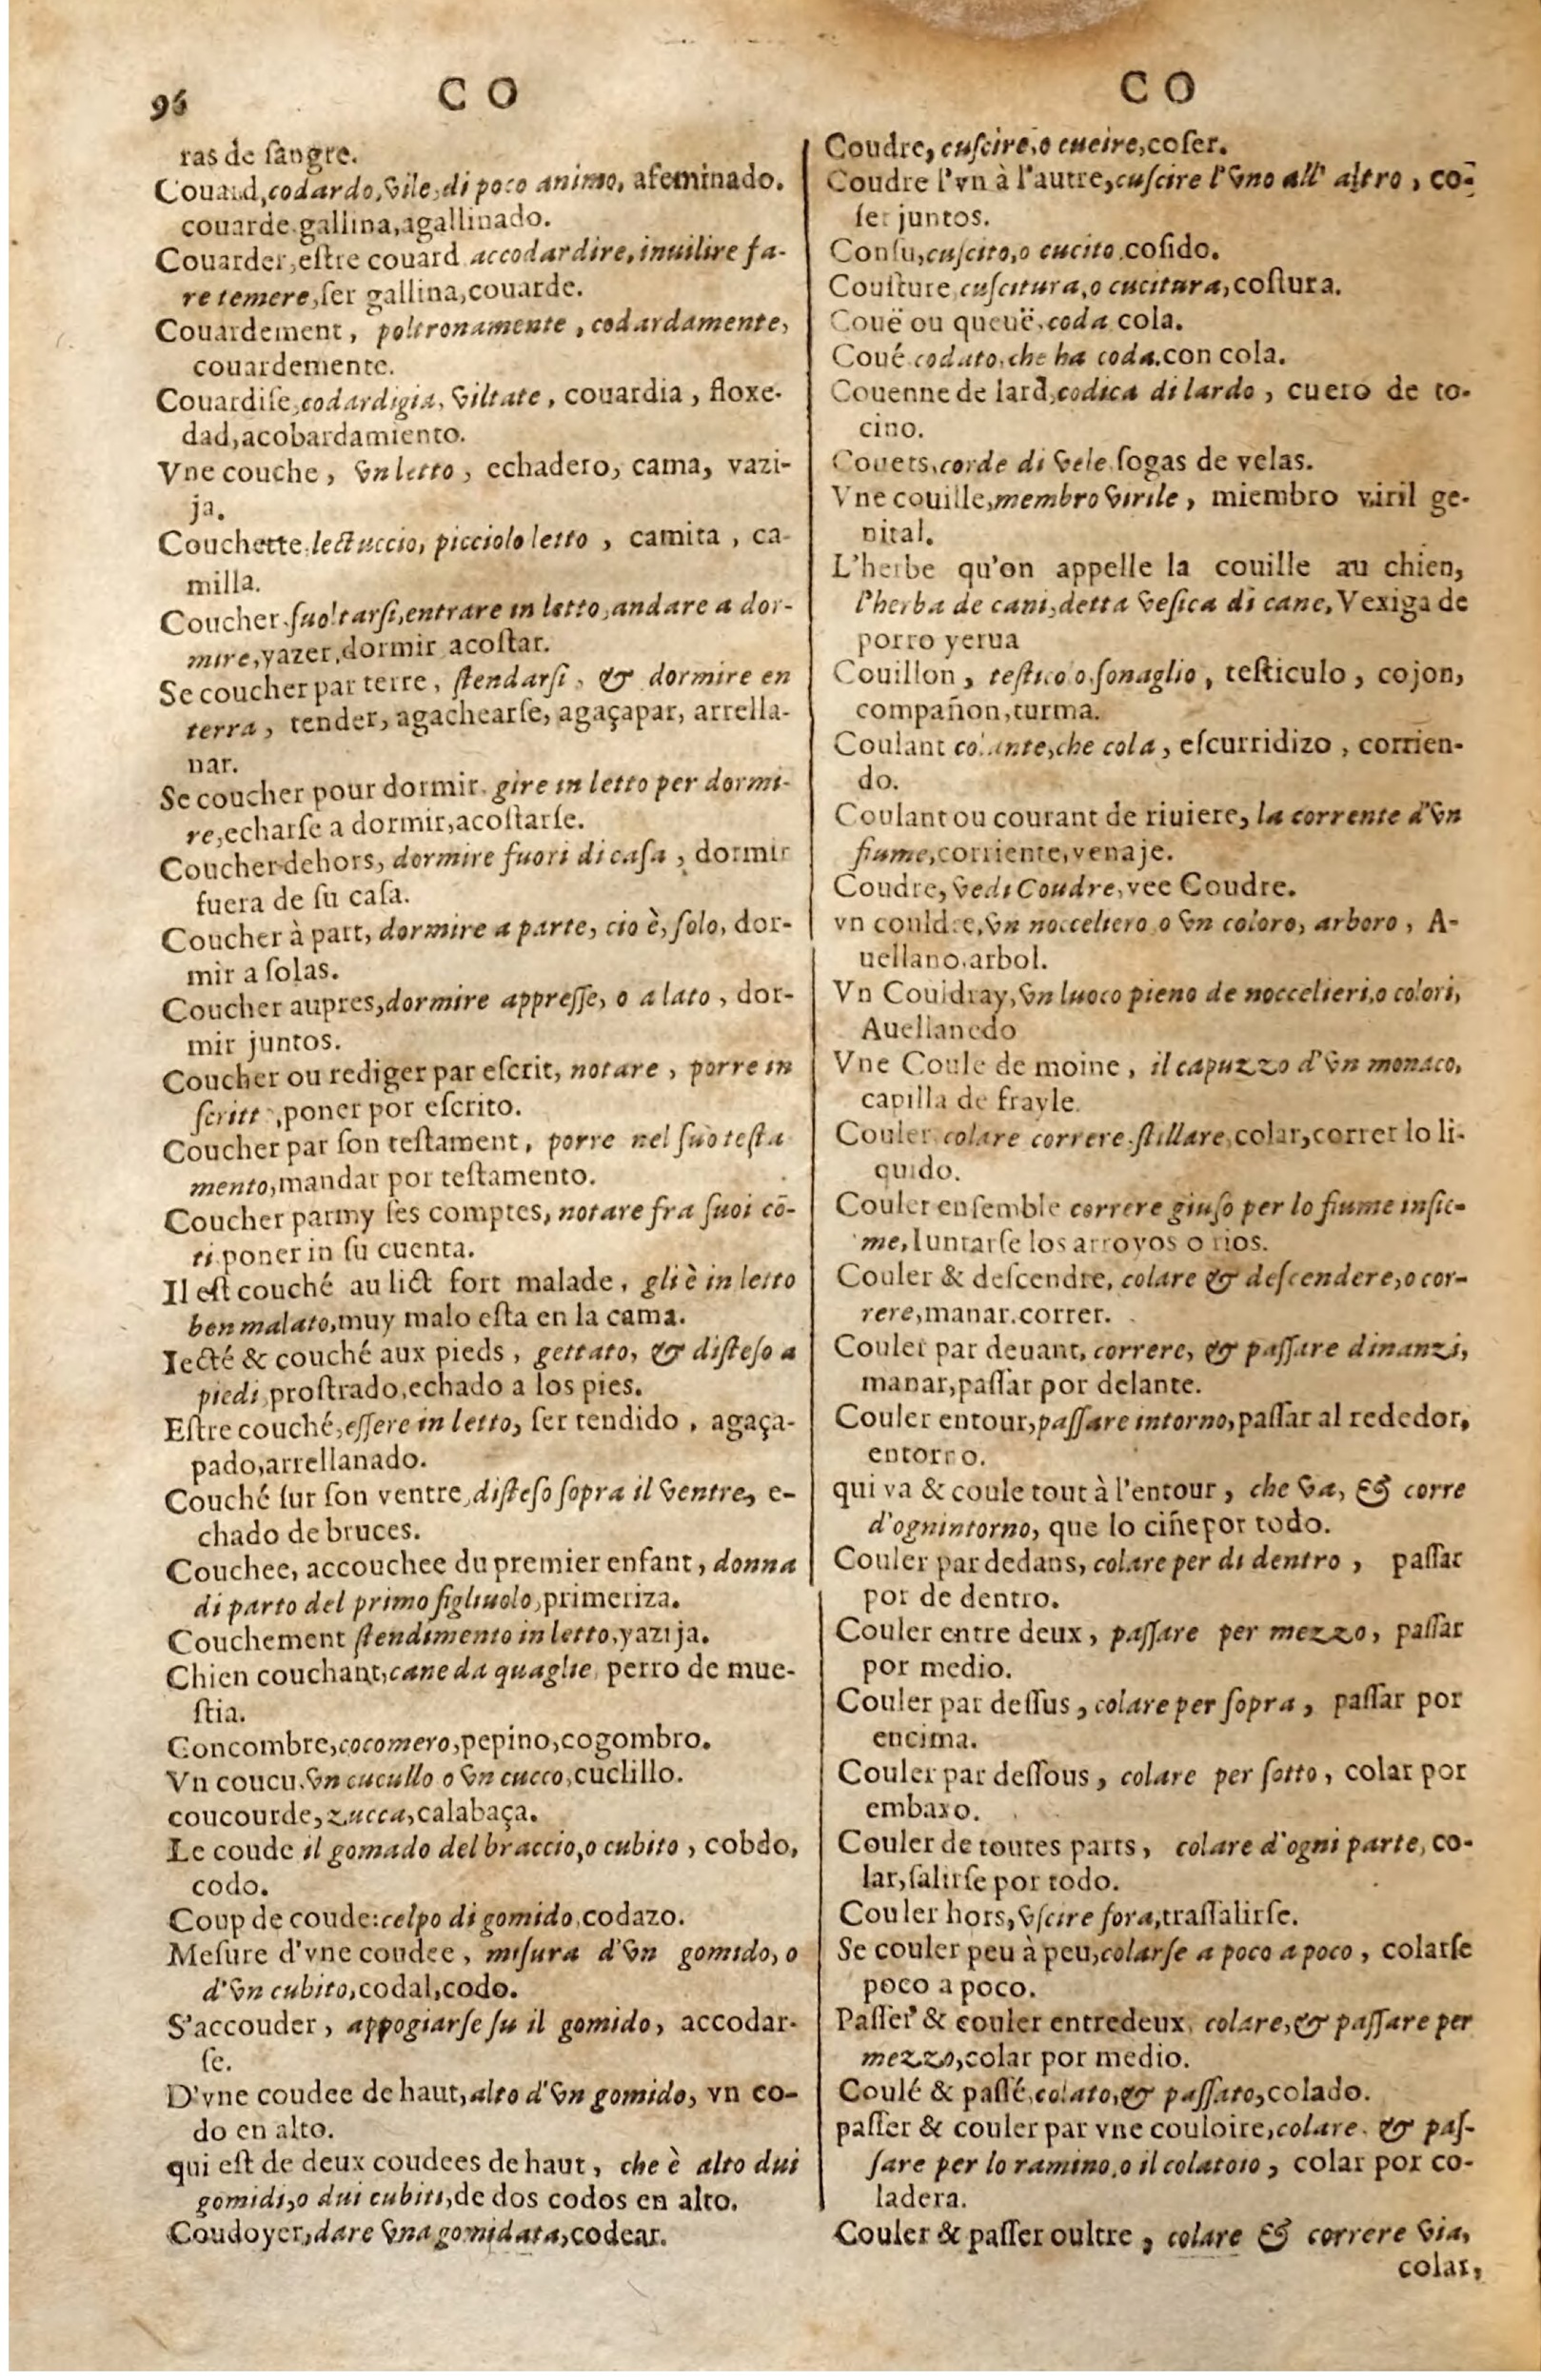 96
C O
ras de ſangre.
Couard, codardo, vile, di poco animo, afeminado.
couarde. gallina, agallinado.
Couarder, eſtre couard accodardire, inuilire fa-
re temere, ſer gallina, couarde.
Couardement, poltronamente, codardamente,
couardemente.
Couardiſe, codardigia, viltate, couardia, floxe-
dad, acobardamiento.
Vne couche, vn letto, echadero, cama, vazi-
ja.
Couchette. lectuccio, picciolo letto, camita, ca-
milla.
Coucher. ſuoltarſi, entrare in letto, andare a dor-
mire, yazer, dormir acoſtar.
Se coucher par terre, ſtendarſi, & dormire en
terra, tender, agachearſe, agaçapar, arrella-
nar.
Se coucher pour dormir. gire in letto per dormi-
re, echarſe a dormir, acoſtarſe.
Coucher dehors, dormire fuori di caſa, dormir
fuera de ſu caſa.
Coucher à part, dormire a parte, cio è, ſolo, dor-
mir a ſolas.
Coucher aupres, dormire appreſſe, o a lato, dor-
mir juntos.
Coucher ou rediger par eſcrit, notare, porre in
ſcritt, poner por eſcrito.
Coucher par ſon teſtament, porre nel ſuo teſta
mento, mandar por teſtamento.
Coucher parmy ſes comptes, notare fra ſuoi cō-
ti poner in ſu cuenta.
Il eſt couché au lict fort malade, gli è in letto
ben malato, muy malo eſta en la cama.
Iecté & couché aux pieds, gettato, & diſteſo a
piedi, proſtrado, echado a los pies.
Eſtre couché, eſſere in letto, ſer tendido, agaça-
pado, arrellanado.
Couché ſur ſon ventre, diſteſo ſopra il ventre, e-
chado de bruces.
Couchee, accouchee du premier enfant, donna
di parto del primo figliuolo, primeriza.
Couchement ſtendimento in letto, yazija.
Chien couchant, cane da quaglie, perro de mue-
ſtia.
Concombre, cocomero, pepino, cogombro.
Vn coucu. vn cucullo o vn cucco, cuclillo.
coucourde, zucca, calabaça.
Le coude il gomado del braccio, o cubito, cobdo,
codo.
Coup de coude: celpo di gomido, codazo.
Meſure d'vne coudee, miſura d'vn gomido, o
d'vn cubito, codal, codo.
S'accouder, appogiarſe ſu il gomido, accodar-
ſe.
D'vne coudee de haut, alto d'vn gomido, vn co-
do en alto.
qui eſt de deux coudees de haut, che è alto dui
gomidi, o dui cubiti, de dos codos en alto.
Coudoyer, dare vna gomidata, codear.
C O
Coudre, cuſcire, o cucire, coſer.
Coudre l'vn à l'autre, cuſcire l'vno all' altro, co-
ſer juntos.
Conſu, cuſcito, o cucito, coſido.
Couſture, cuſcitura, o cucitura, coſtura.
Couë ou queuë, coda cola.
Coué codato, che ha coda. con cola.
Couenne de lard, codica di lardo, cuero de to-
cino.
Couets, corde di vele ſogas de velas.
Vne couille, membro virile, miembro viril ge-
nital.
L'herbe qu'on appelle la couille au chien,
l'herba de cani, detta veſica di cane, Vexiga de
porro yerua
Couillon, teſtico o ſonaglio, teſticulo, cojon,
compañon, turma.
Coulant colante, che cola, eſcurridizo, corrien-
do.
Coulant ou courant de riuiere, la corrente d'vn
fiume, corriente, venaje.
Coudre, vedi Coudre, vee Coudre.
vn couldre, vn nocceliero o vn coloro, arboro, A-
uellano. arbol.
Vn Couldray, vn luoco pieno de noccelieri, o colori,
Auellanedo
Vne Coule de moine, il capuzzo d'vn monaco,
capilla de frayle.
Couler, colare correre. ſtillare, colar, correr lo li-
quido.
Couler enſemble correre giuſo per lo fiume inſie-
me, Iuntarſe los arroyos o rios.
Couler & deſcendre, colare & deſcendere, o cor-
rere, manar. correr.
Couler par deuant, correre, & paſſare dinanzi,
manar, paſſar por delante.
Couler entour, paſſare intorno, paſſar al rededor,
entorno.
qui va & coule tout à l'entour, che va, & corre
d'ognintorno, que lo ciñe por todo.
Couler par dedans, colare per di dentro, paſſar
por de dentro.
Couler entre deux, paſſare per mezzo, paſſar
por medio.
Couler par deſſus, colare per ſopra, paſſar por
encima.
Couler par deſſous, colare per ſotto, colar por
embaxo.
Couler de toutes parts, colare d'ogni parte, co-
lar, ſalirſe por todo.
Couler hors, vſcire fora, traſſalirſe.
Se couler peu à peu, colarſe a poco a poco, colarſe
poco a poco.
Paſſer & couler entredeux, colare, & paſſare per
mezzo, colar por medio.
Coulé & paſſé, colato, & paſſato, colado.
paſſer & couler par vne couloire, colare. & paſ-
ſare per lo ramino, o il colatoio, colar por co-
ladera.
Couler & paſſer oultre, colare & correre via,
colar,